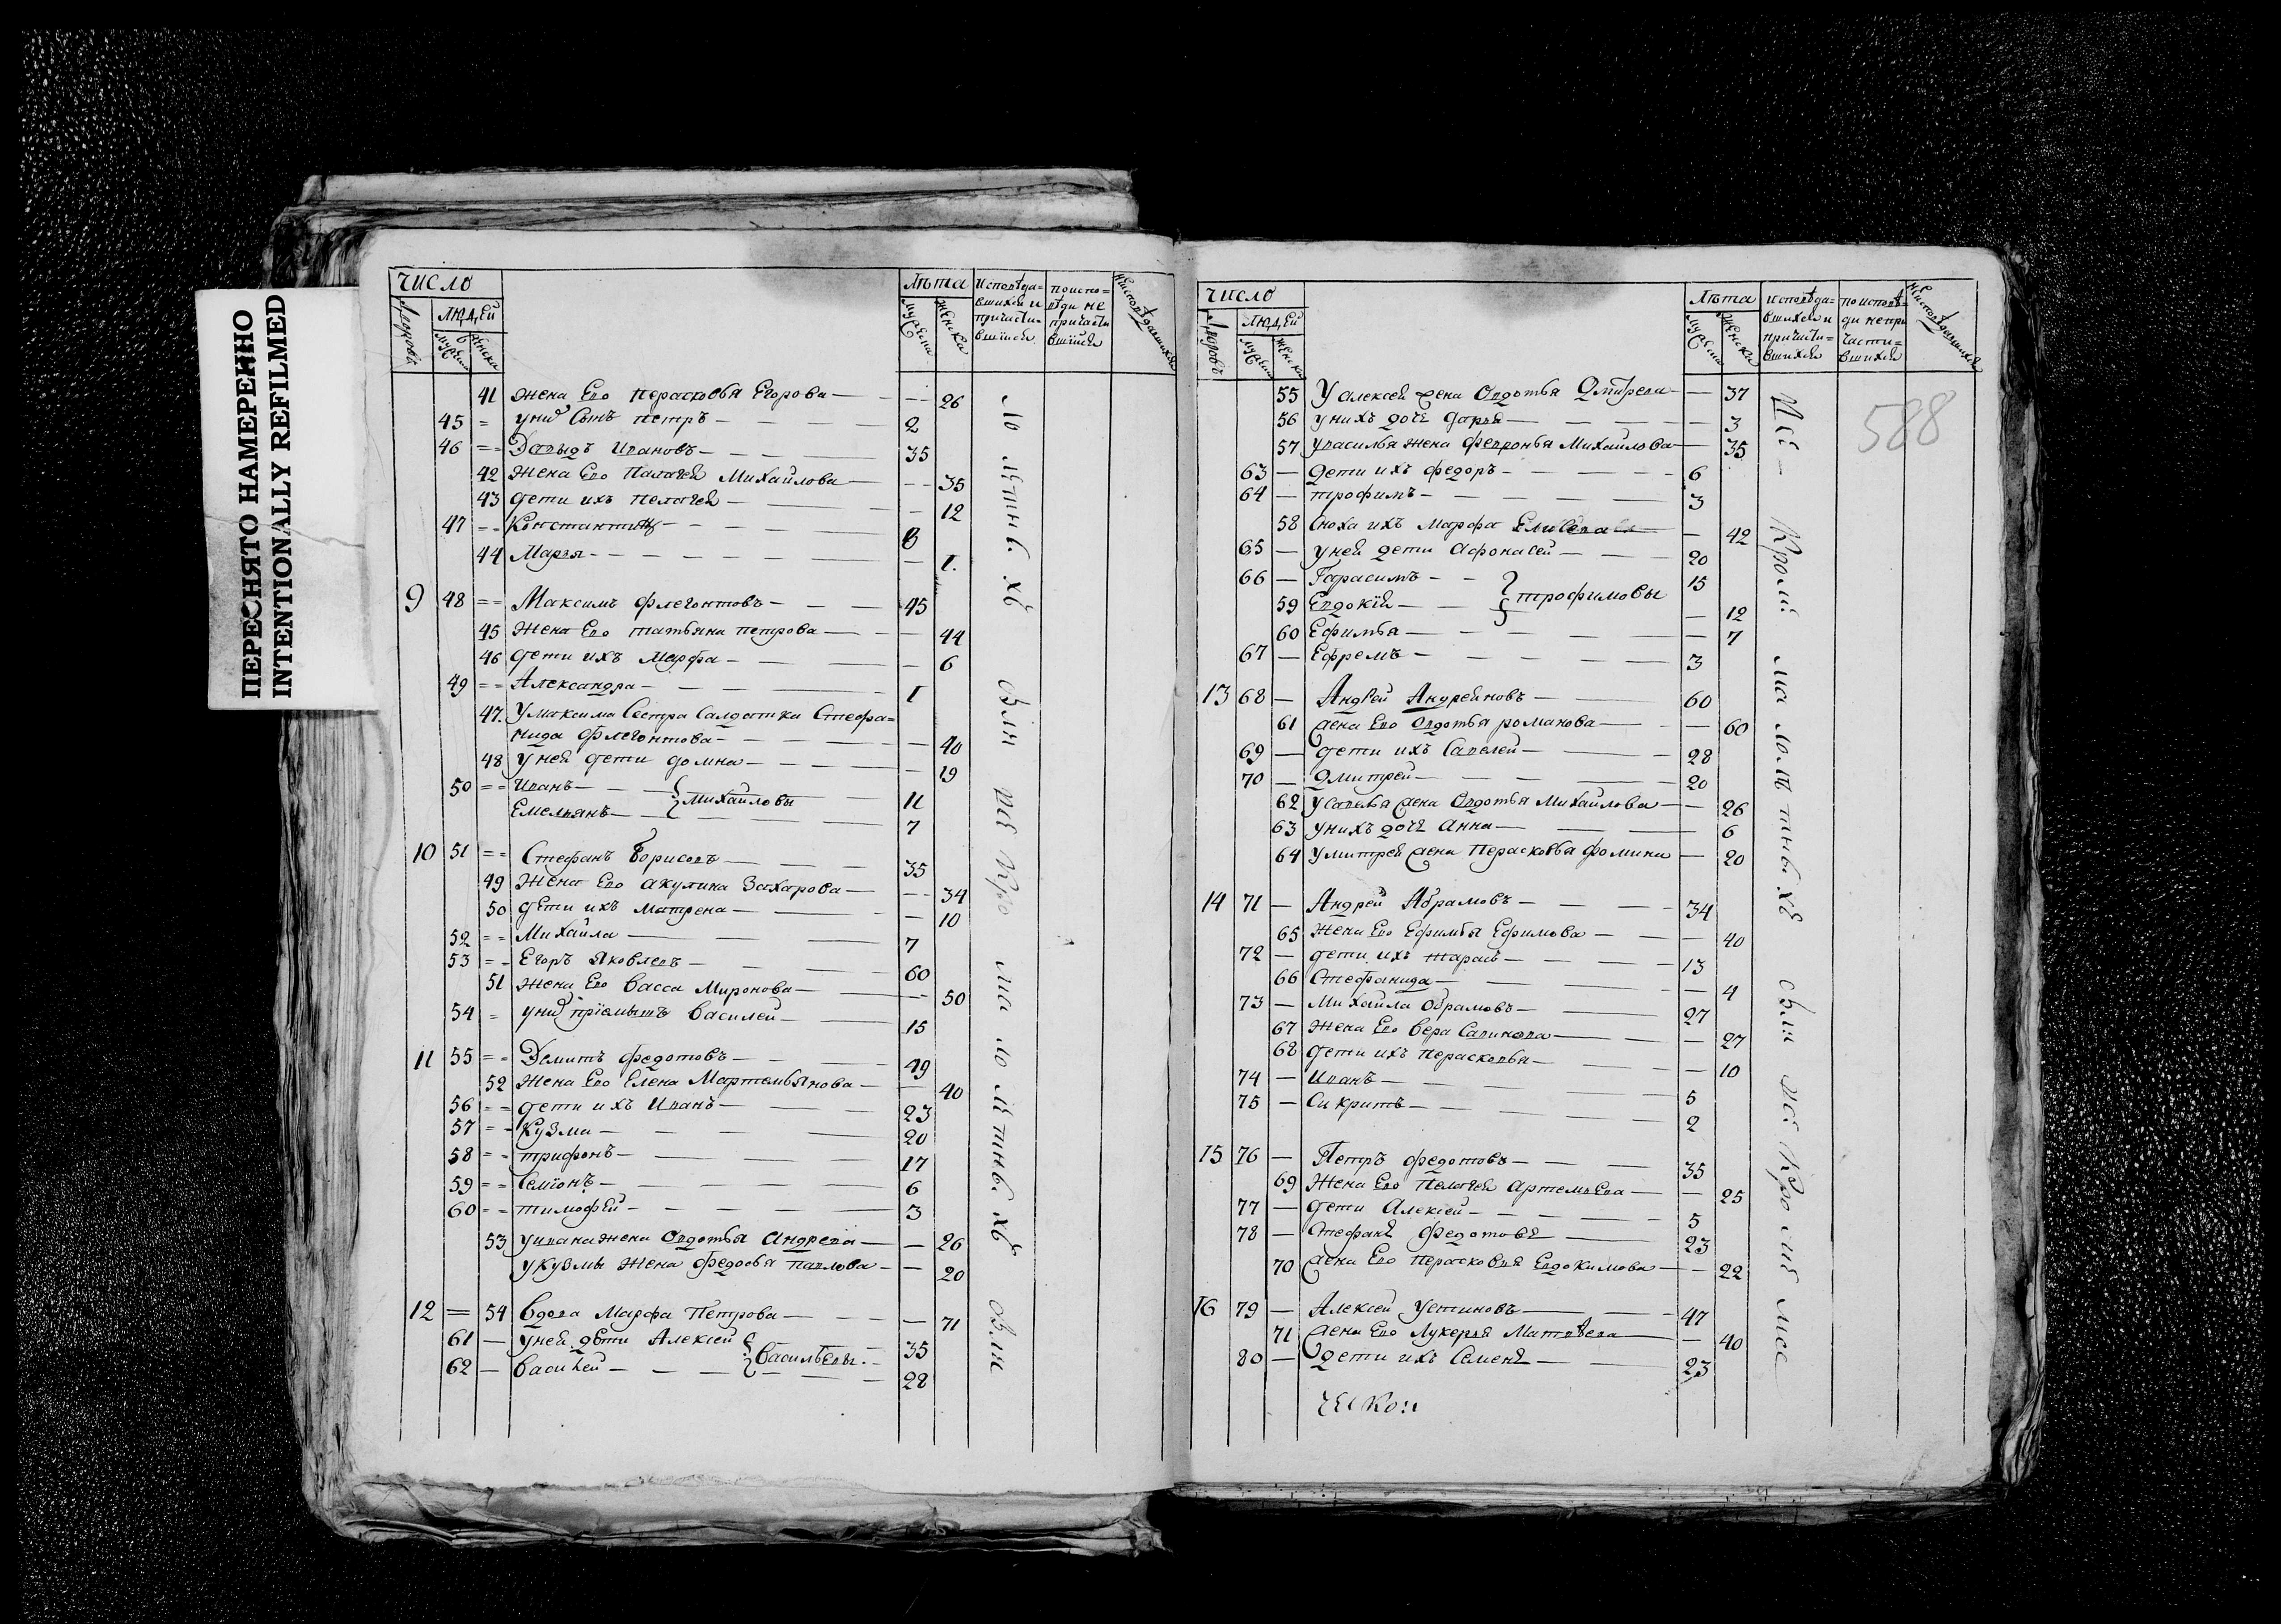 ПЕРЕСНЯТО НАМЕРЕННО
INTENTIONALLY REFILMED
число
людей
лѣта
Дворовъ
мужеска
женска
исповѣда=
вшихся и
причасти=
вшихся
по испо=
вѣди не
причасти
вшихся
неисповѣдавшихся
41 жена Ево Перасковья Егорова — 26
45 = у них Сынъ петръ — 2
46 == Давыдъ Ивановъ — 35
42 Жена Ево Палагея Михайлова — 35
43 дети ихъ пелагея — 12
47 == Константинъ — 8
44 Марья — 1.
9 48 == Максимъ флегонтовъ — 45
45 Жена Ево татьяна петрова — 44
46 дети ихъ Марфа — 6
49 == Александра — 1
47. У максима Сестра Салдатка Стефа=
нида флегонтова — 40
48 у ней дети домна — 19
50 == Иванъ — 11
Емельянъ — } Михайловы 7
10 51 == Стефанъ Борисовъ — 35
49 Жена Ево акулина Захарова — 34
50 дети ихъ матрена — 10
52 == Михайла — 7
53 == Егоръ Яковлевъ — 60
51 жена Ево Васса Миронова — 50
54 = у них пріемышъ Василей — 15
11 55 == Демитъ федотовъ — 49
52 Жена Ево Елена Мартемьянова — 40
56 == дети ихъ Иванъ — 23
57 == Кузма — 20
58 == трифонъ — 17
59 == Семіонъ — 6
60 == тимофей — 3
53 у ивана жена Овдотья андреева — 26
у кузмы жена федосья павлова — 20
12 = 54 Вдова Марфа Петрова — 71
61 — у ней дѣти Алексей 35
62 — Василей — } Васильевы 28
число
людей
лѣта
Дворовъ
мужеска
женска
исповѣда=
вшихся и
причасти=
вшихся
по исповѣ=
ди не при
части=
вшихся
неисповѣдавшихся
588
55 У алексея жена Овдотья Дмитрева — 37
56 у нихъ дочь дарья — 3
57 у василья жена февронья Михайлова — 35
63 — дети ихъ федоръ — 6
64 — трофимъ — 3
58 сноха ихъ марфа — 42
65 — у ней дети афонасей — 20
66 — Гарасимъ — 15
59 Евдокія — } трофимовы 12
60 Ефимья — 7
67 — Ефремъ — 3
13 68 — Андрей Андреяновъ — 60
61 жена Ево Овдотья романова — 60
69 — дети ихъ Савелей — 28
70 — Дмитрей — 20
62 у савелья жена Овдотья Михайлова — 26
63 у нихъ дочь анна — 6
64 у митрея жена Перасковья фомина — 20
14 71 — Андрей Абрамовъ — 34
65 Жена Ево Ефимья Ефимова — 40
72 — дети ихъ тарасъ — 13
66 Стефанида — 4
73 — Михайла Обрамовъ — 27
67 Жена Ево Вера Савинова — 27
68 дети ихъ перасковья — 10
74 — Иванъ — 5
75 — — 2
15 76 — Петръ федотовъ — 35
69 Жена Ево Пелагея Артемьева — 25
77 — дети Алексей — 5
78 — Стефанъ федотовъ — 23
70 жена Ево Перасковья Евдокимова — 22
16 79 — Алексей Устиновъ — 47
71 жена Ево Лукерья Матвѣева — 40
80 — дети ихъ Семенъ — 23